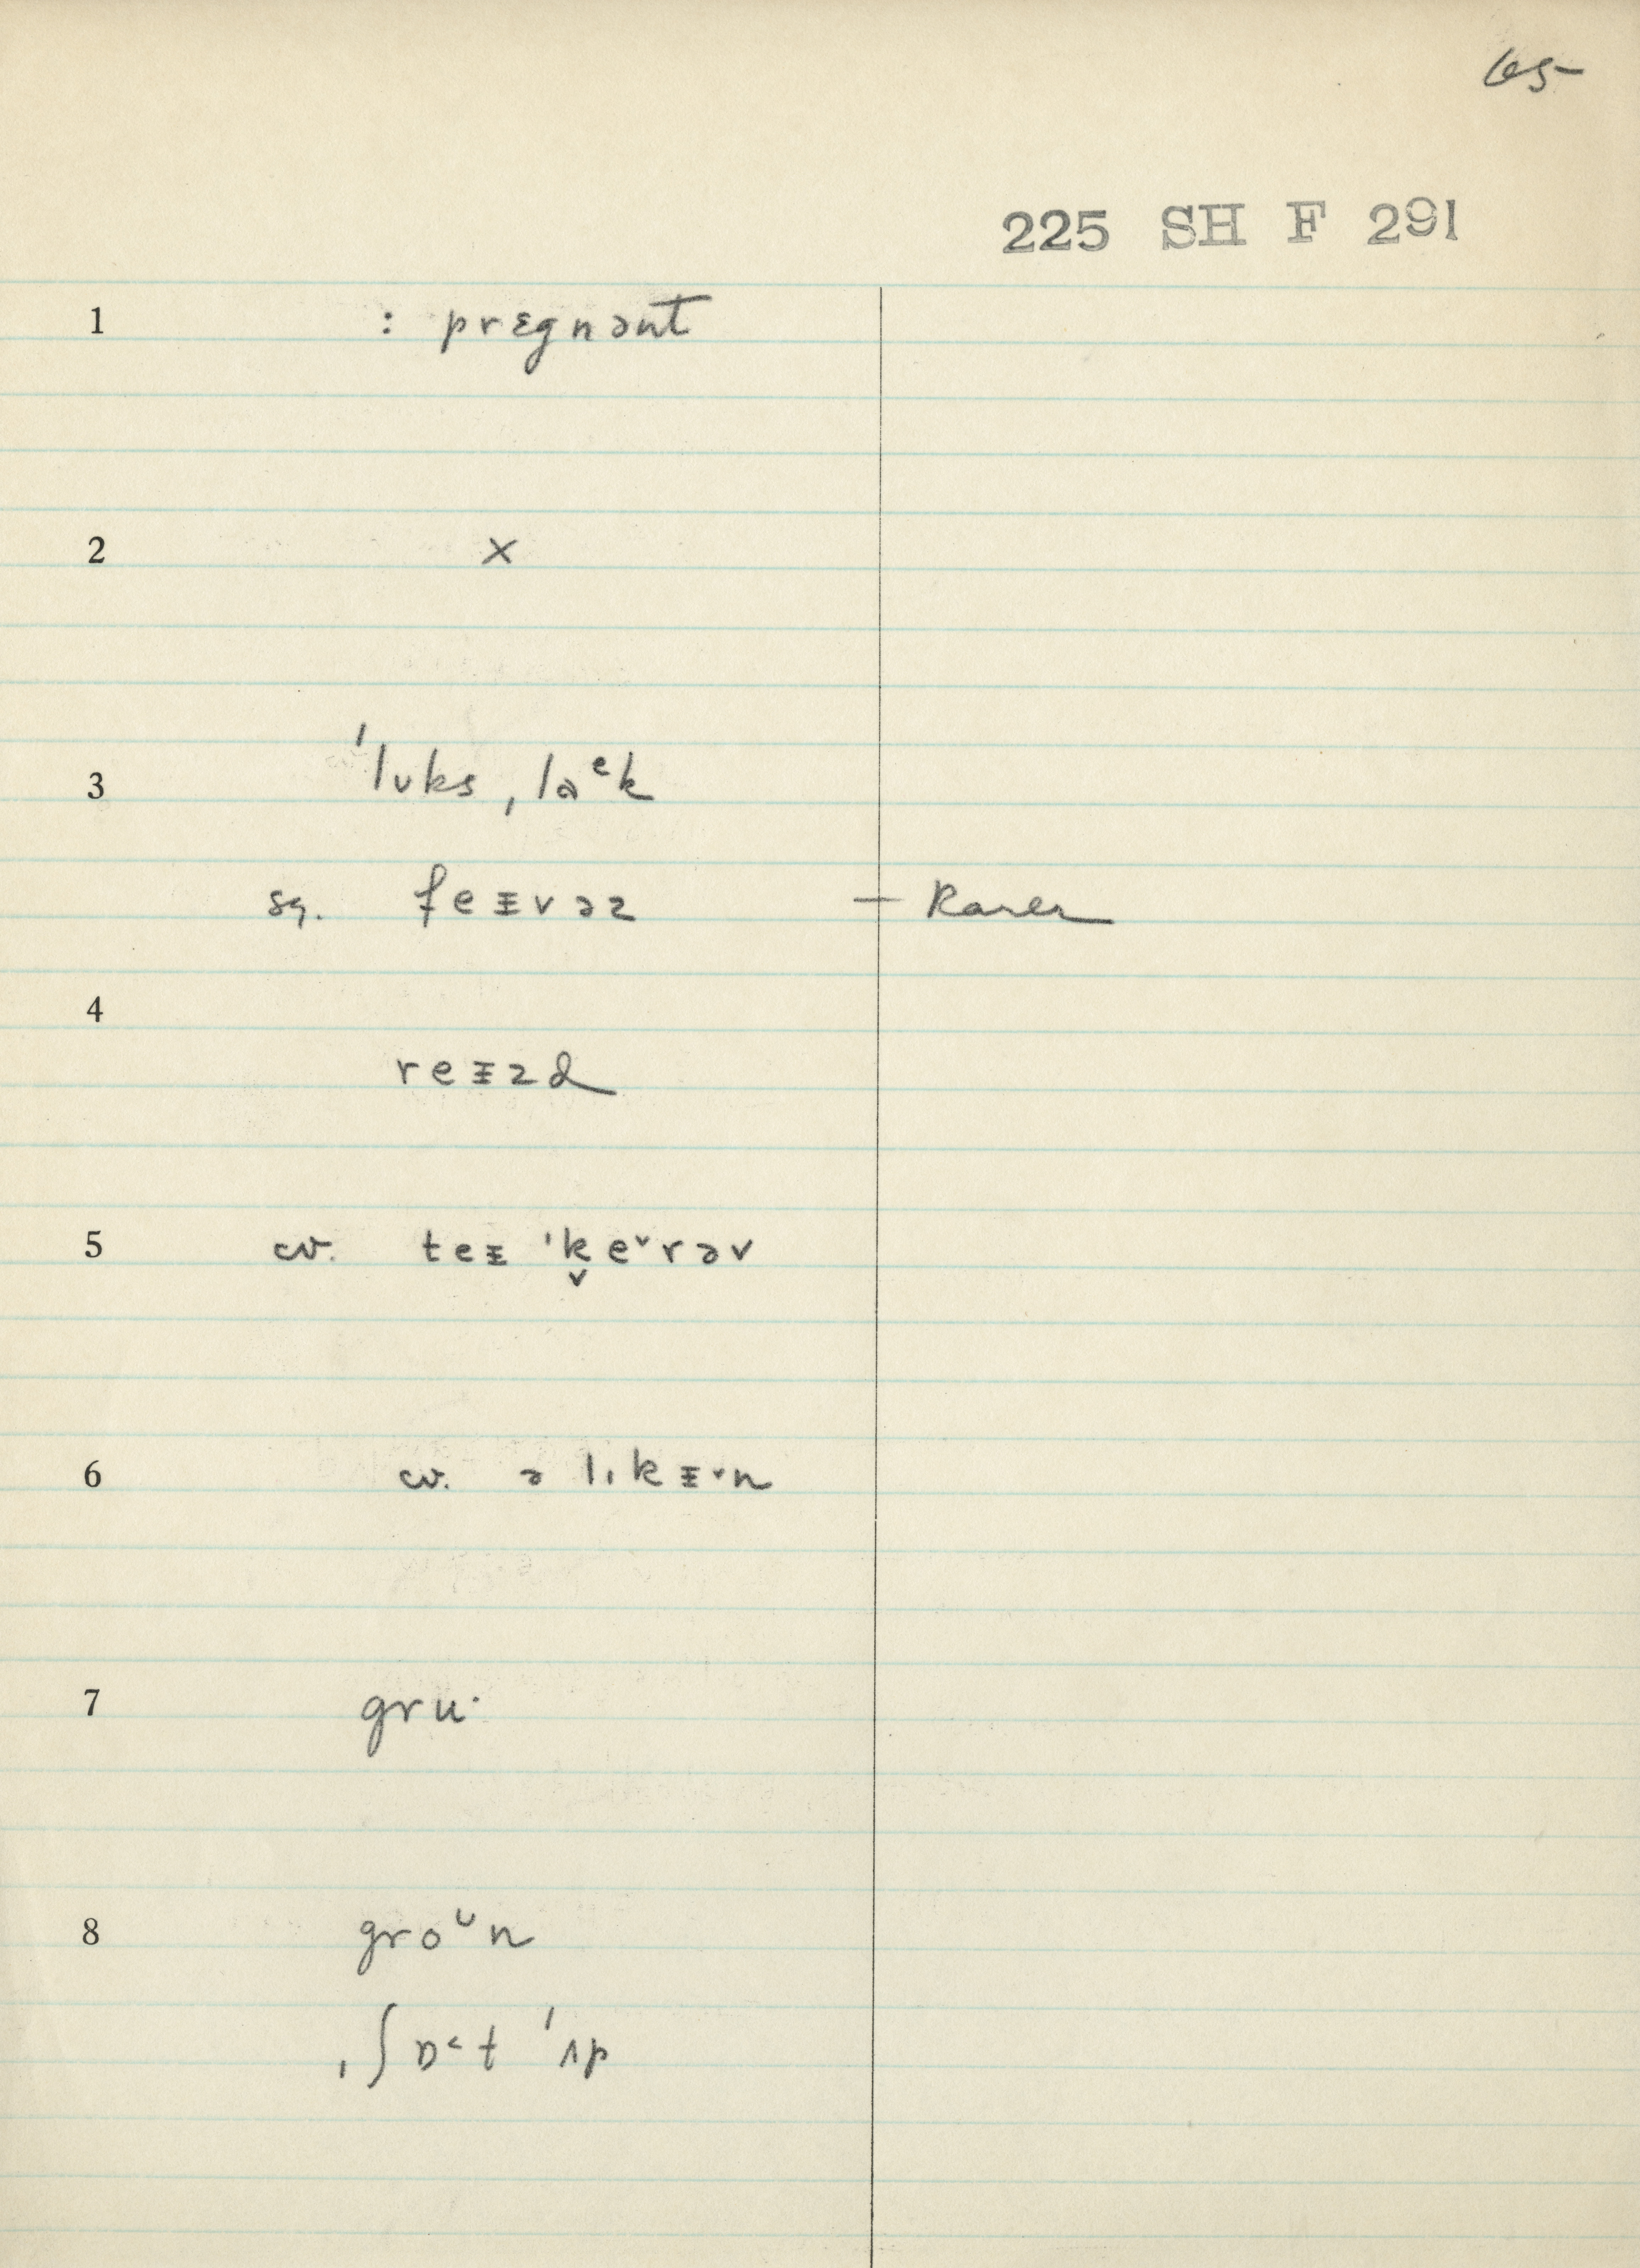 65
225 SH F 291
1 : prɛgnənt
2 ×
3 ˈlʊks ˌlaᵉk
sg. feᵻvəz — Rarer
4
reᵻzd
5 cv. teᵻ ˈk̬e˅rəv
6 cv. ə lɪkᵻ˅n
7 gru·
8 groᶷn
ˌʃɒ˂t ˈʌp